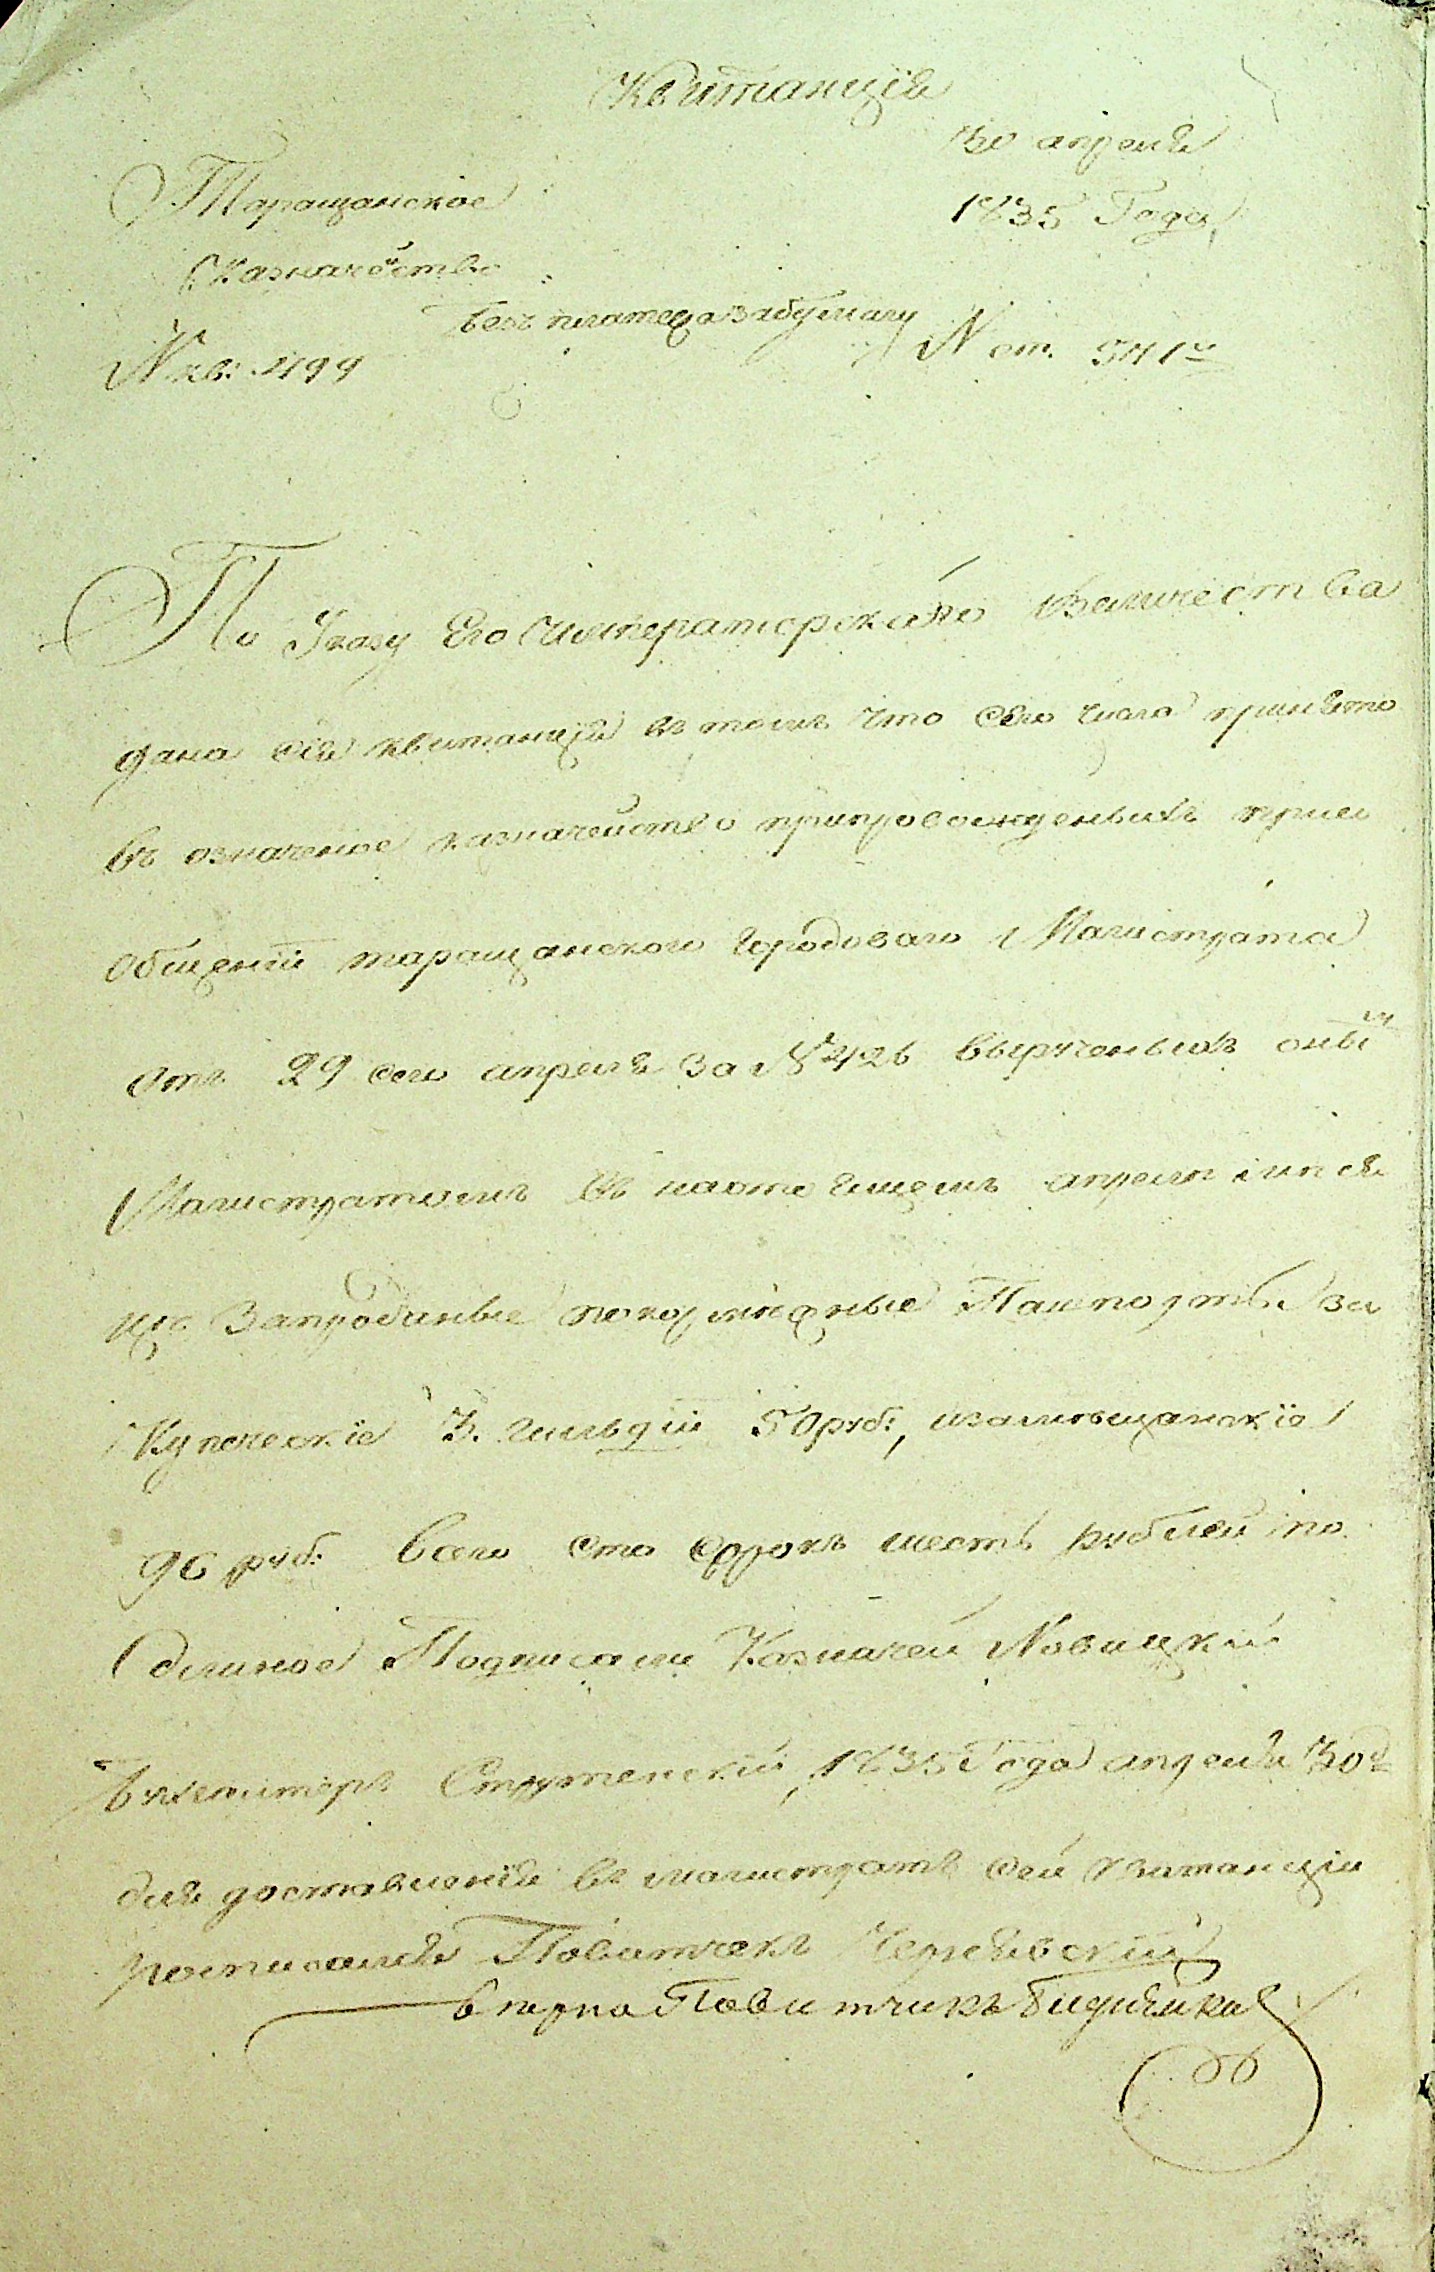 Квитанція
30 апреля
Таращанское
1835 Года,
Казначейство
безъ платежа за бумагу
N кв: 499
N ст. 541й
По Указу Его Императорскаго Величества
дана сія квитанція въ томъ что сего числа принято
въ означеное казначейство припровожденыхъ при со
общеній таращанского Городоваго Магистрата
отъ 29 сего апреля за N 426 вырученыхъ онымъ
Магистратомъ въ настоящемъ апреле месяце
за проданые покормежные Пашпорты за
Купеческіе 3. гильдіи 50 руб:, иза мещанскіе
96 руб: всего сто сорокъ шесть рублей по
длиное Подписали Казначей Новицкій
Бухгалтеръ Струтенскій, 1835 Года апреля 30
для доставленія въ магистратъ сей квитанціи
росписался Повитчекъ
верно Повитчикъ